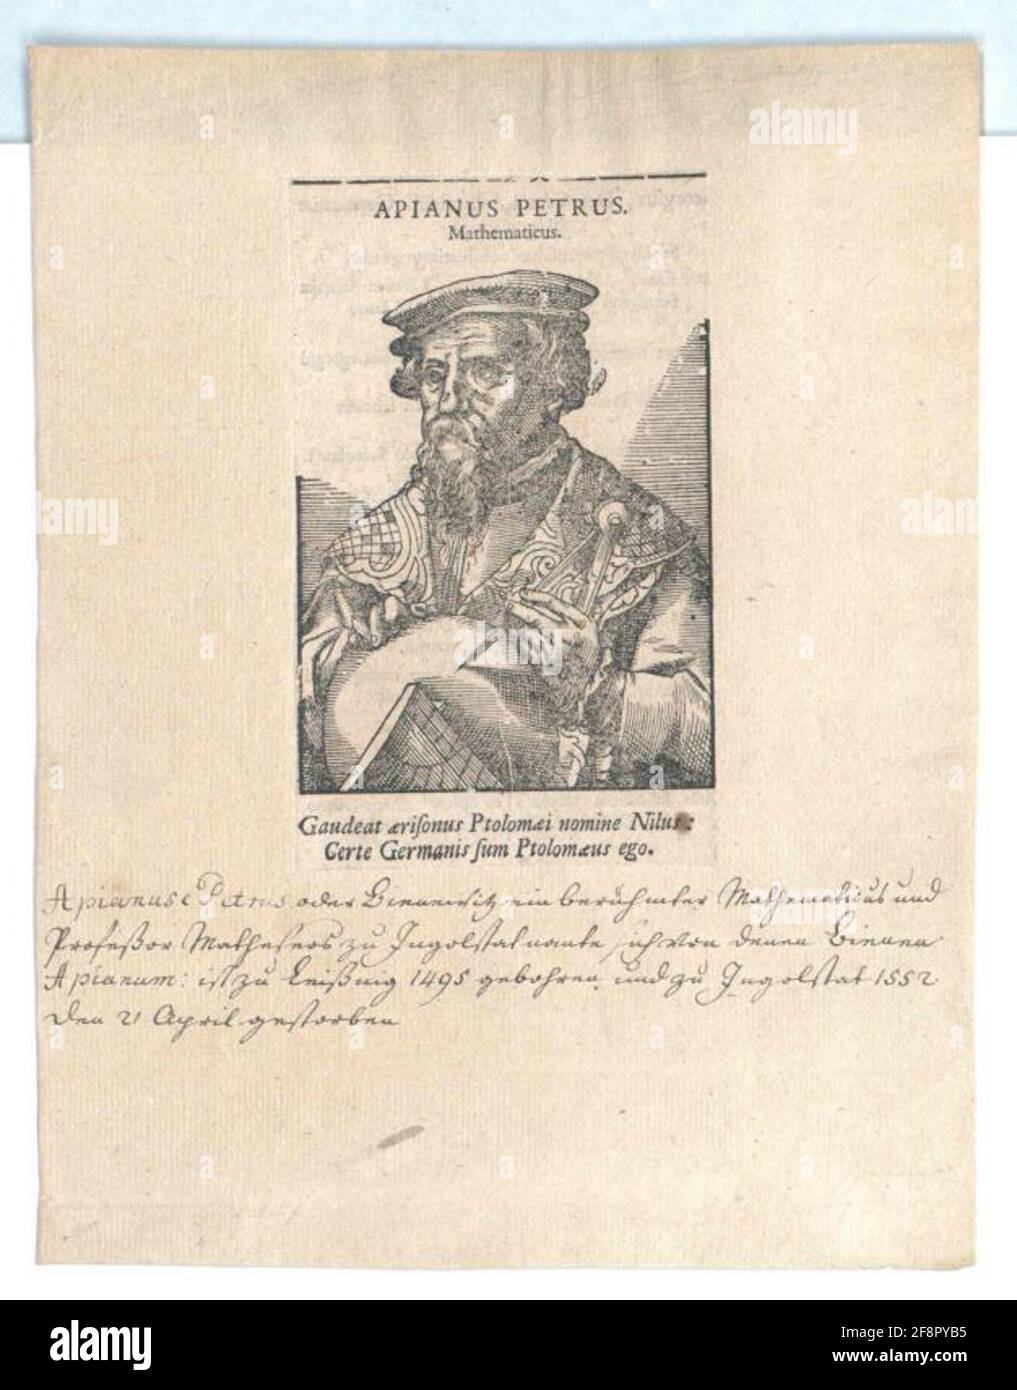 APIANUS PETRUS.
Mathematicus.
Gaudeat æriſonus Ptolomæi nomine Nilus:
Certe Germanis ſum Ptolomæus ego.
Apianus Petrus oder Bienewitz ein berühmter Mathematicus und
Profeßor Matheseos zu Ingolstat nante sich von denen Bienen
Apianum: ist zu Leißnig 1495 gebohren und zu Ingolstat 1552
den 21 April gestorben
alamy
Image ID: 2F8PYB5
www.alamy.com